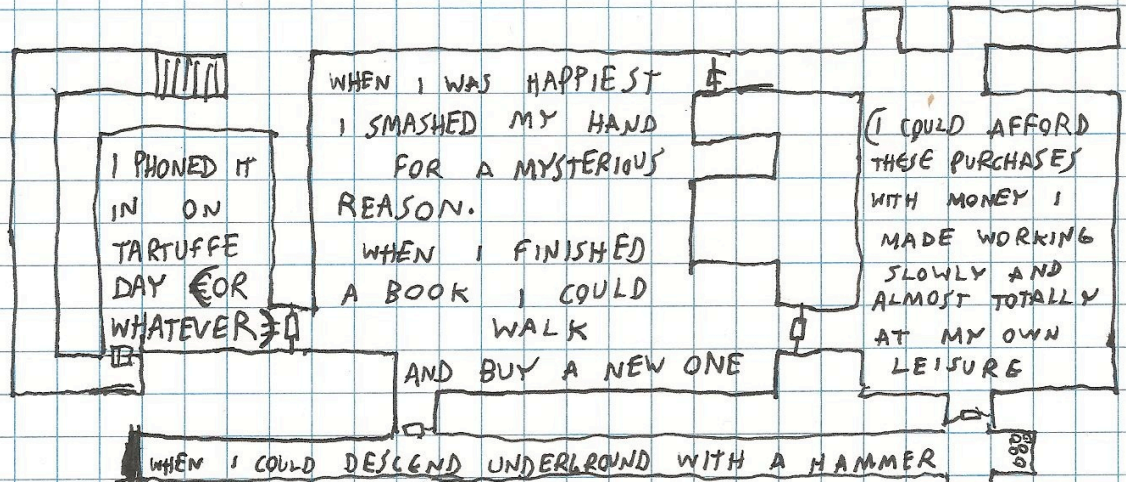 I PHONED IT
IN ON
TARTUFFE
DAY (OR
WHATEVER)
WHEN I WAS HAPPIEST
I SMASHED MY HAND
FOR A MYSTERIOUS
REASON.
WHEN I FINISHED
A BOOK I COULD
WALK
AND BUY A NEW ONE
(I COULD AFFORD
THESE PURCHASES
WITH MONEY I
MADE WORKING
SLOWLY AND
ALMOST TOTALLY
AT MY OWN
LEISURE
WHEN I COULD DESCEND UNDERGROUND WITH A HAMMER